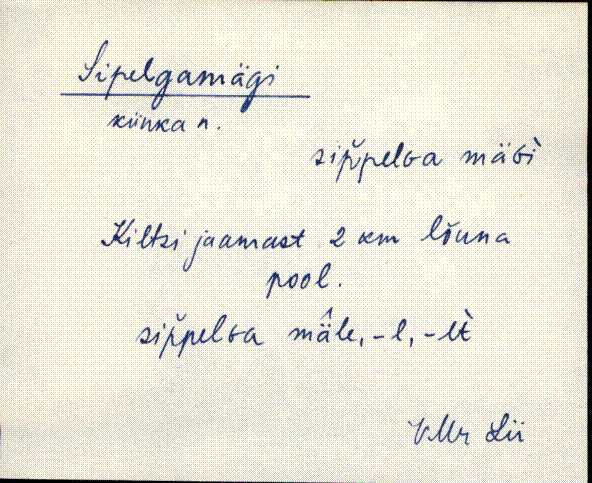 Sipelgamägi
künka n.
sip̆pelɢa mäɢì
Kiltsi jaamast 2 km lõuna
pool.
sip̆pelɢa mä̂le, -l, -lt̀
VMr Lii